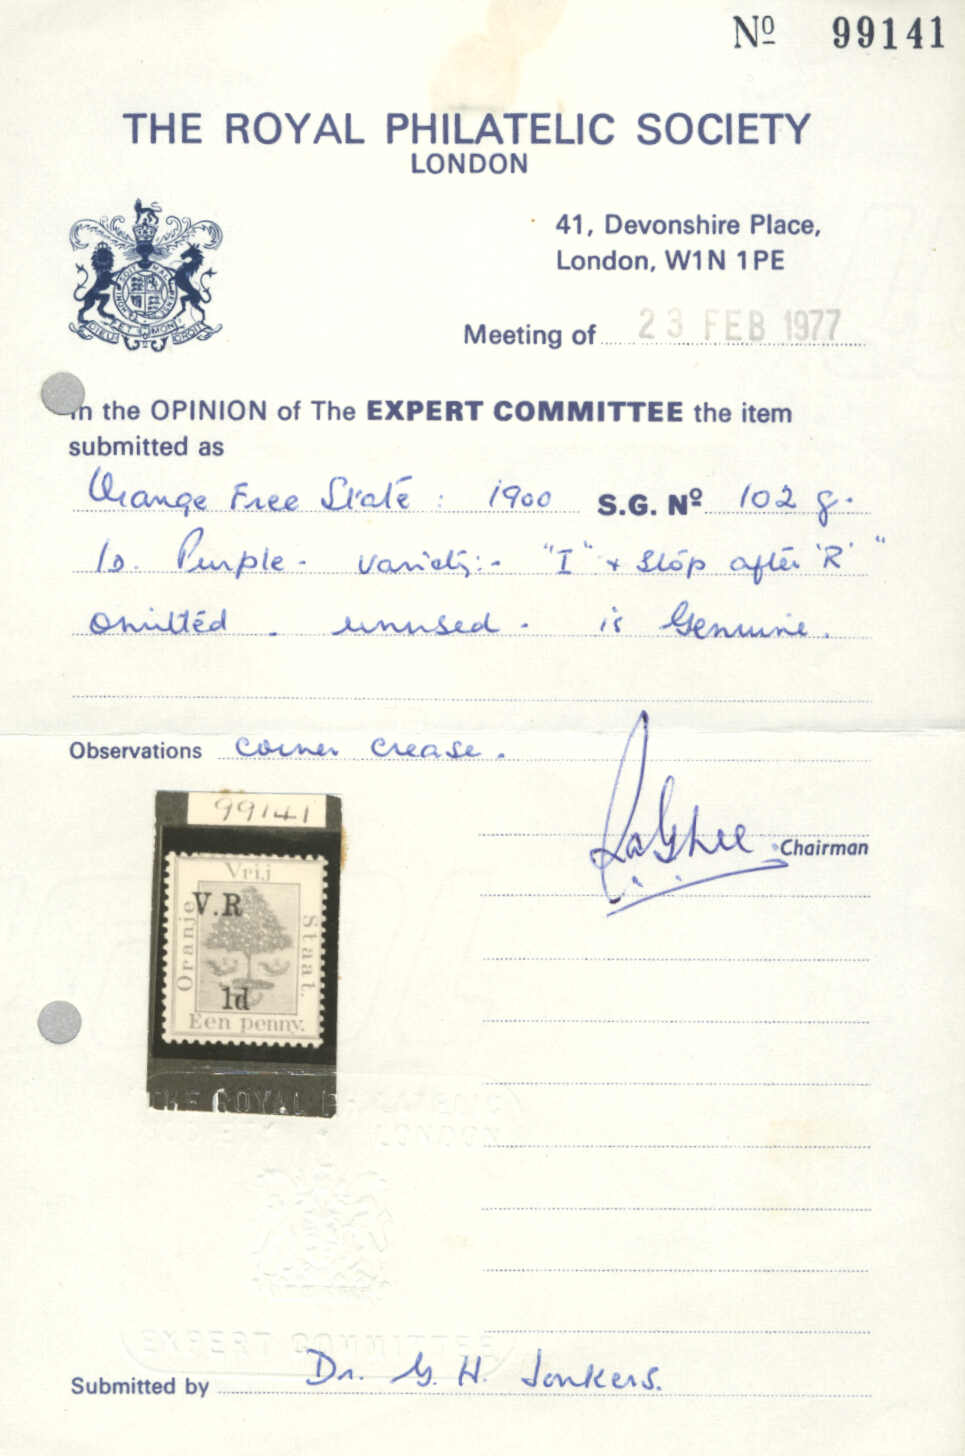 Nº 99141
THE ROYAL PHILATELIC SOCIETY
LONDON
41, Devonshire Place,
London, W1N 1PE
Meeting of 23 FEB 1977
In the OPINION of The EXPERT COMMITTEE the item
submitted as
Orange Free State : 1900 S.G. Nº 102 g.
1d. Purple - variety:- "I" + stop after 'R'"
omitted - unused - is Genuine.
Observations corner crease.
99141
Vrij
V.R
Oranje
Staat.
1d
Een penny.
Chairman
THE ROYAL PHILATELIC
SOCIETY LONDON
EXPERT COMMITTEE
Submitted by Dr. G. H. Jonkers.